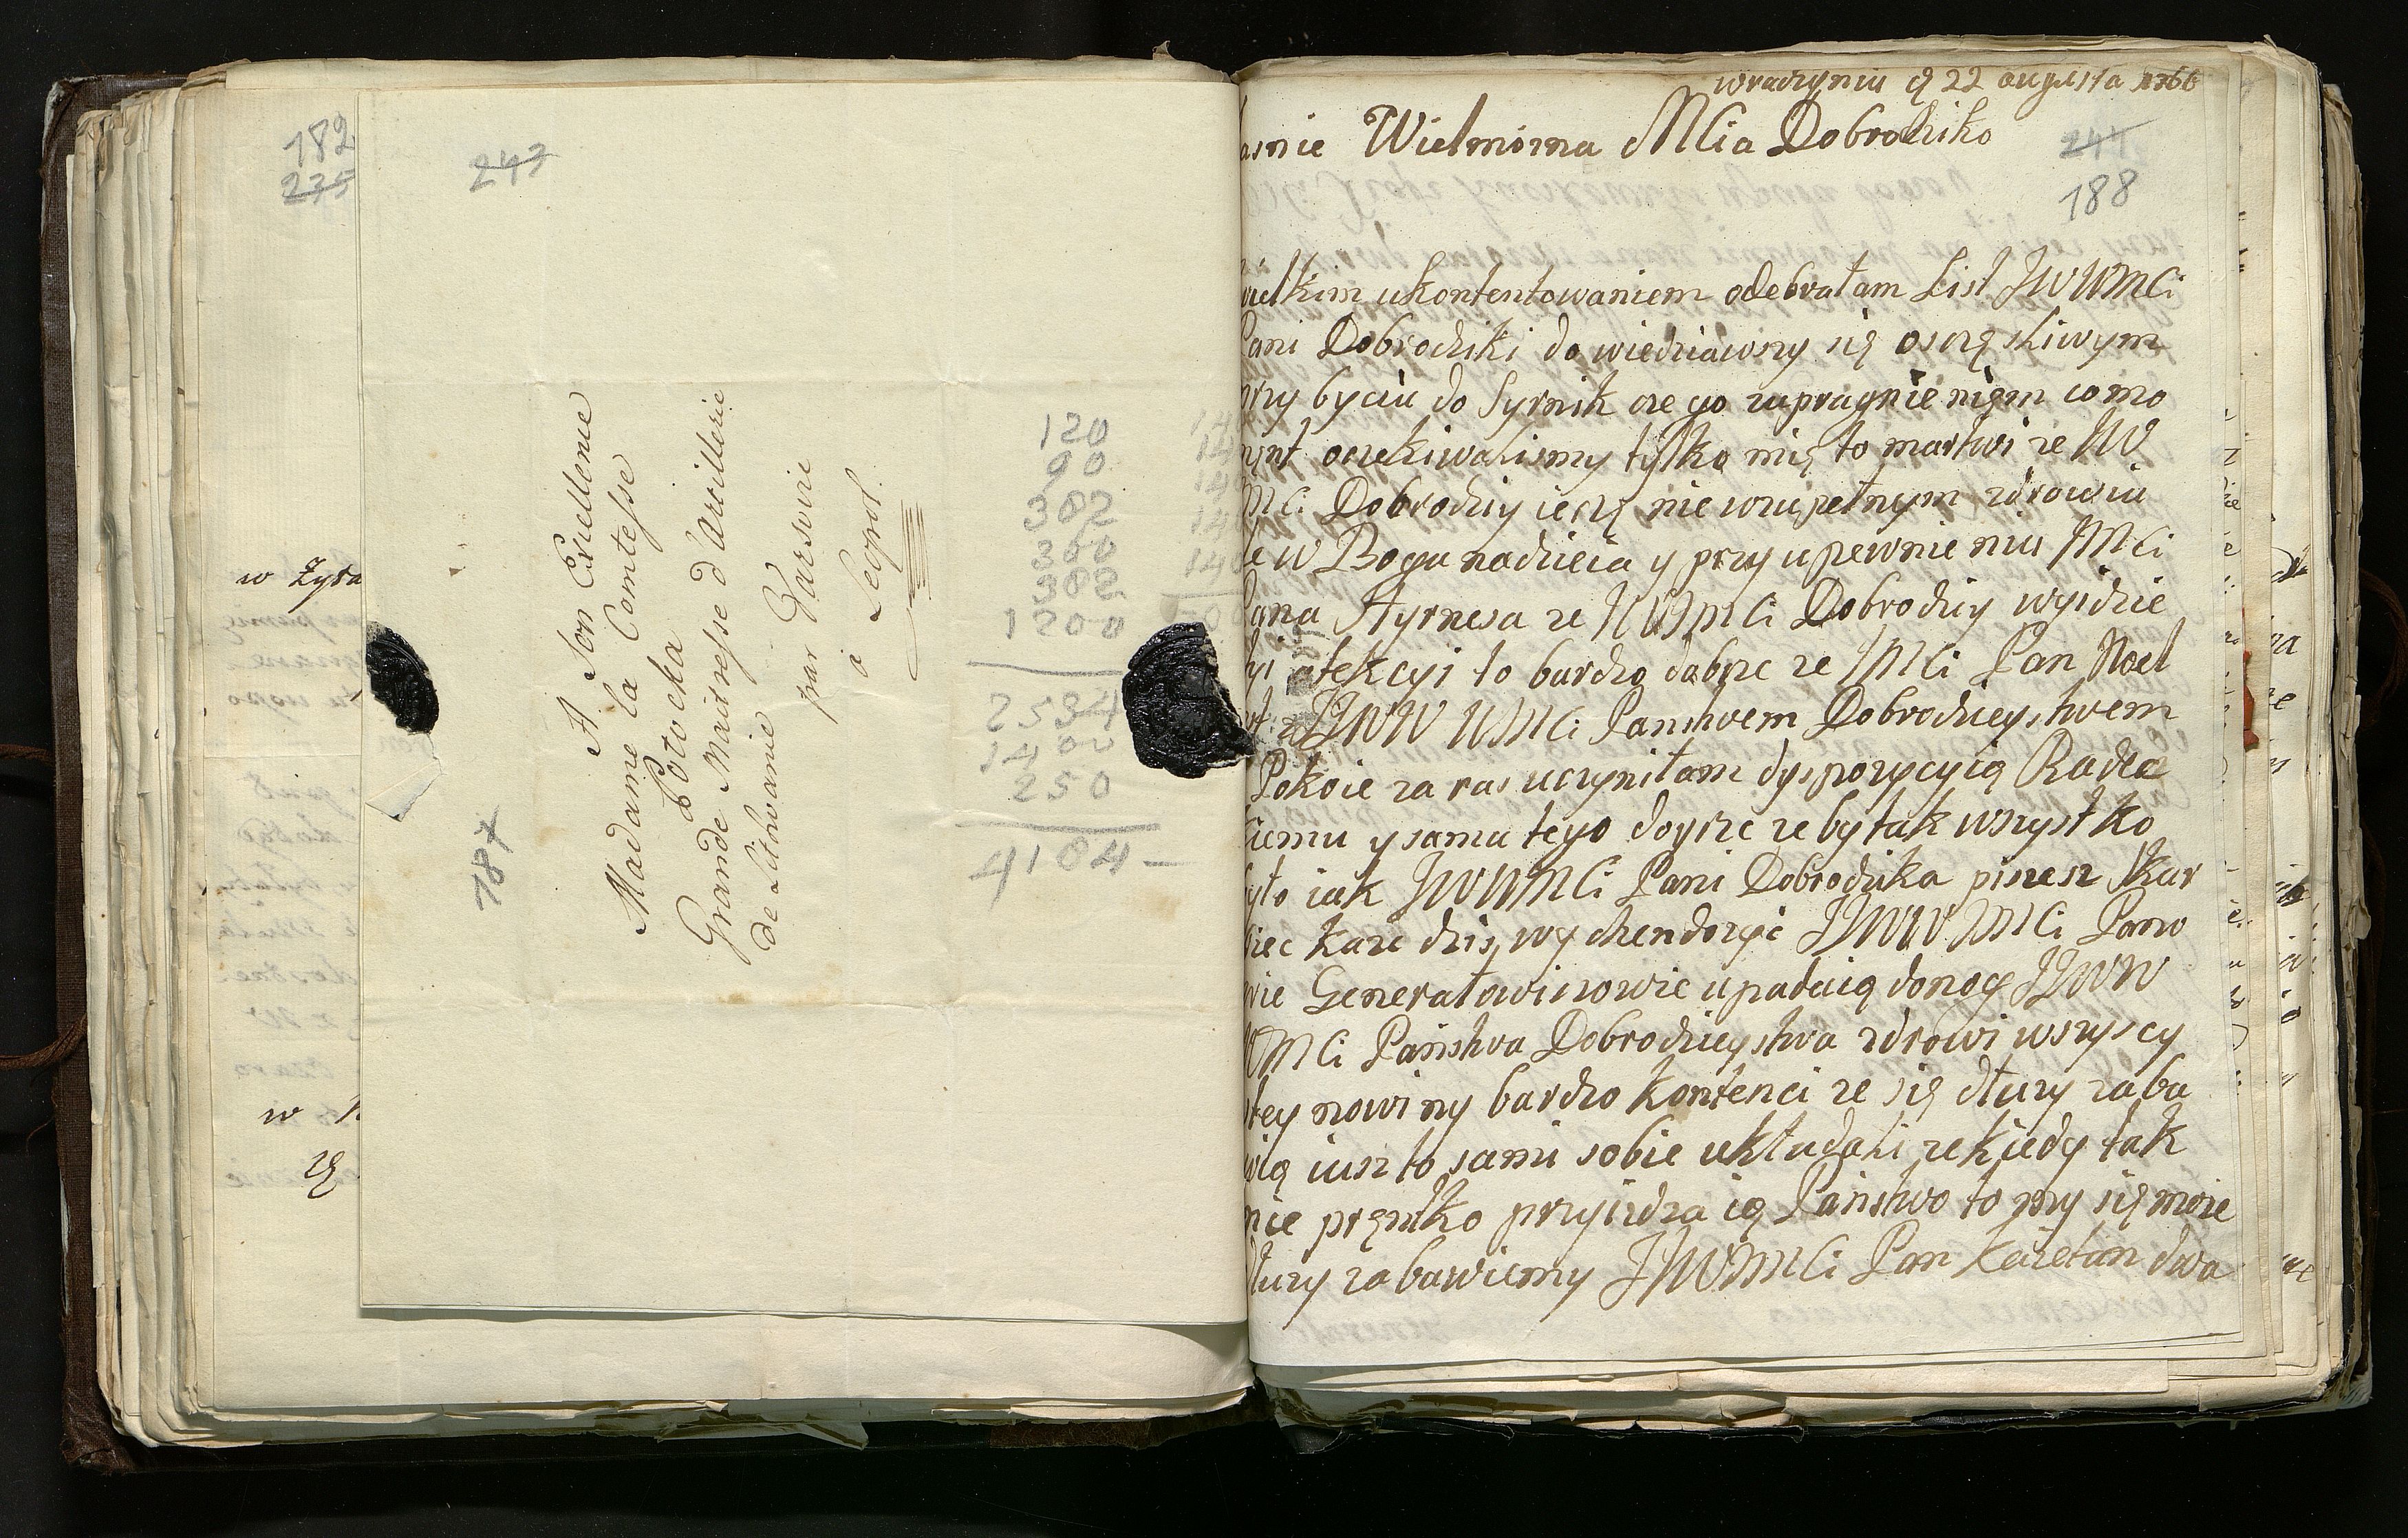 182
235
243
w Zyta
w
187
A Son Excellence
Madame la Comtesse
Potocka
Grande Maitresse d'Artillerie
de Lithuanie
par Varsovie
à
Leopol.
120
90
302
300
302
1200
2534
1400
250
4104 —
wraczyniu d 22 augusta 1766
asnie Wielmozna MCia Dobrodziko
244
188
wielkim ukontentowaniem odebrałam List JWWMCi
Pani Dobrodziki do wiedziawszy się oszczęsliwym
przy byciu do Syrnik czego zapragnieniem como
ment oczekiwalismy tylko mię to martwi ze JW
MCi Dobrodziy ieszcze niewzupełnym zdrowiu
le w Bogu nadzieia y przy upewnie niu JMCi
Pana Hyrnesa ze JWJMCi Dobrodziy wyidzie
tyi afekcyi to bardzo dobrze ze JMCi Pan Noel
JJWW WMCi Panstwem Dobrodzieystwem
Pokoie zaras uczyniłam dyspozycyią Radła
kiemu y sama tego doyrze zeby tak wszystko
było iak JWWMCi Pani Dobrodzika piszesz Skar
biec kaze dziś wychendozyć JJWWJMCi Pano
wie Generałowiczowie upadaią donog JJWW
WMCi Państwa Dobrodzieystwa zdrowi wszyscy
ztey nowiny bardzo kontenci ze się dłuzy zaba
wią iuszto sami sobie układali ze kiedy tak
nie prętko przyiadza ią Państwo to my się moze
dłuzy zabawiemy JWJMCi Pan Kazetan dwa